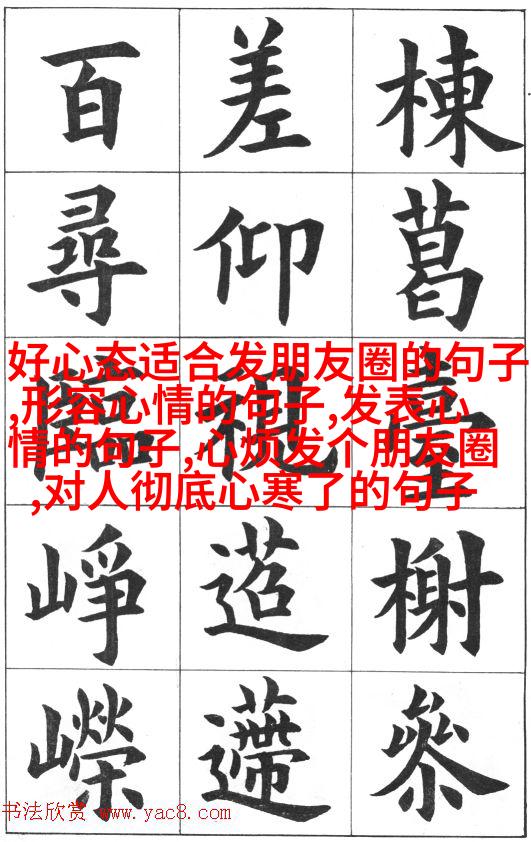 棟葛臺榭參
差仰視
百尋臨崢嶸
好心态适合发朋友圈的句子
,形容心情的句子,发表心
情的句子,心烦发个朋友圈
,对人彻底心寒了的句子
书法欣赏 www.yac8.com